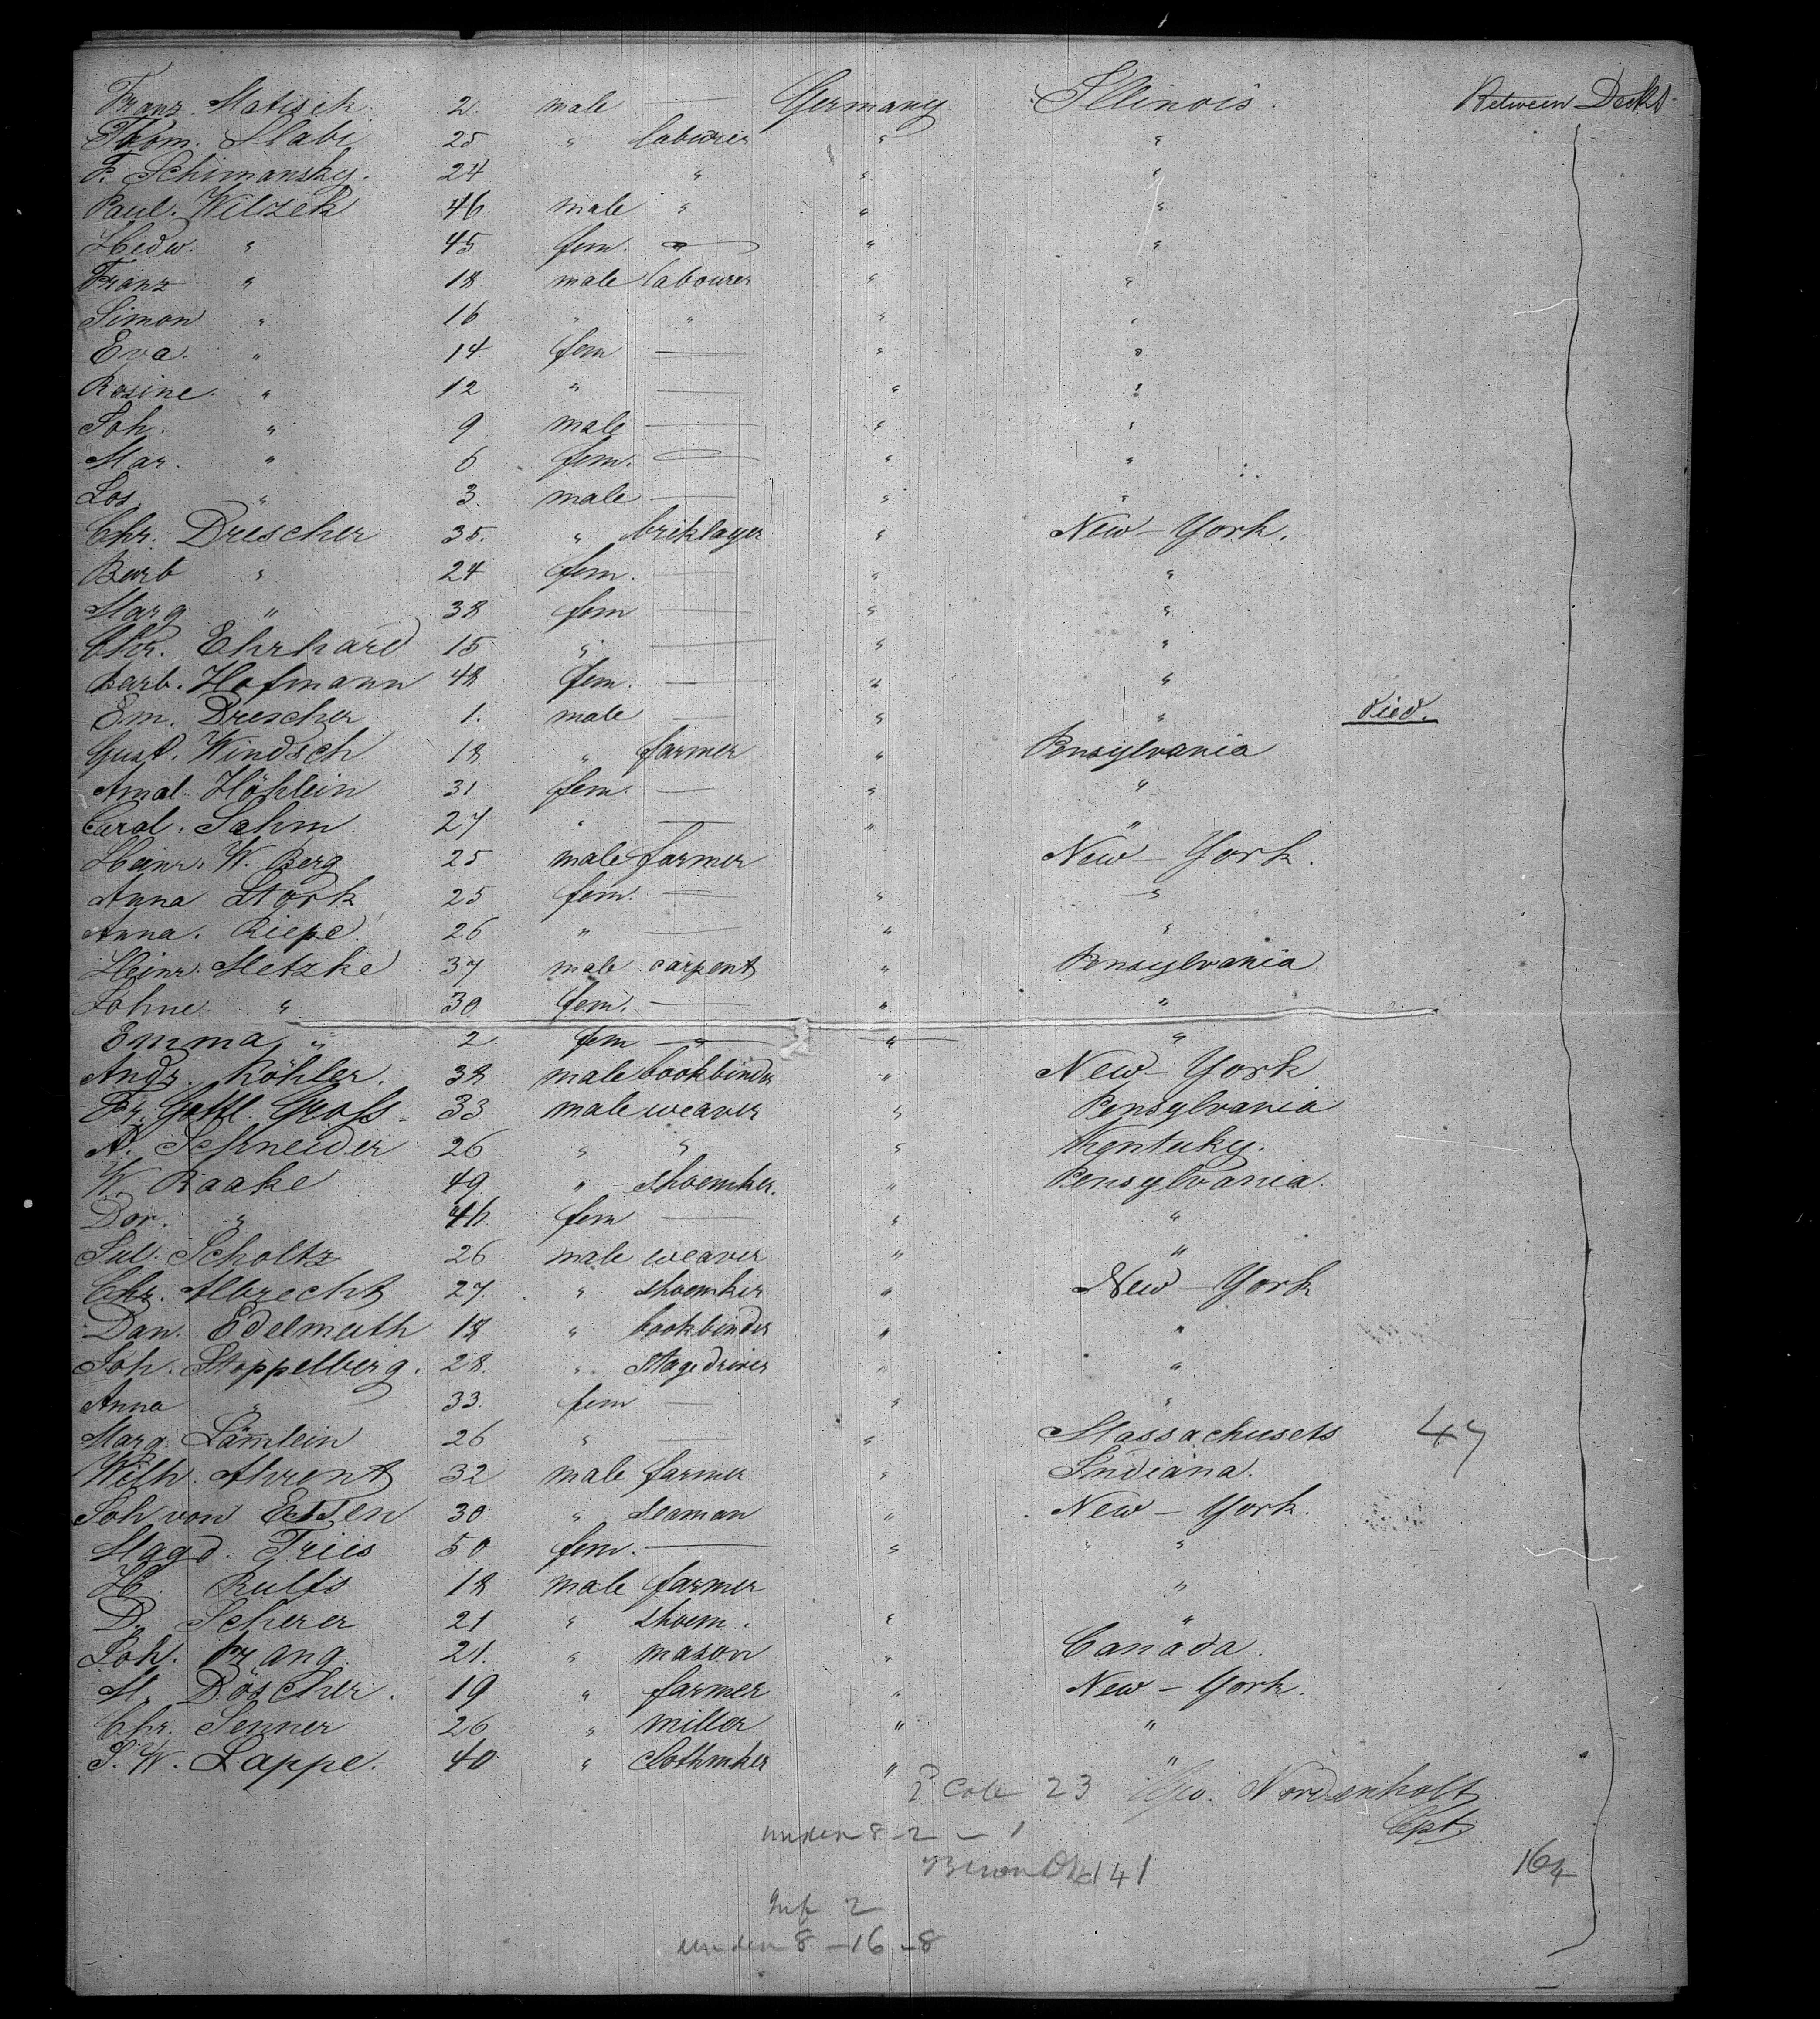 Franz Matisek. 2. male — Germany Illinois. Between Decks.
Thom. Slabi 25 " labourer " "
F. Schimansky. 24 " " "
Paul. Wilzek 46 male " " "
Hedw. " 45 fem. — " "
Franz " 18 male labourer " "
Simon " 16 " " " "
Eva. " 14. fem — " "
Rosine. " 12 " — " "
Joh. " 9 male — " "
Mar. " 6 fem. — " "
Jos " 3. male — " "
Chr. Drescher 35. " briklayer " New-York.
Barb " 24 fem. — " "
Marg " 38 fem — " "
Chr. Ehrhard 15 " — " "
Barb. Hofmann 48 fem. — " "
Em. Drescher 1. male — " " died.
Gust. Windsch 18 " farmer " Pensylvania
Amal. Höhlein 31 fem. — " "
Carol. Sahm. 27 " — " "
Heinr. W. Berg 25 male farmer New-York.
Anna Stork 25 fem. — " "
Anna. Riepe. 26 " — " "
Heinr. Metzke 37 male carpent " Pensylvania
Johne. " 30 fem. — " "
Emma " 2. fem — " "
Andr. Köhler. 38 male bookbinder " New-York
Fr. Gottl. Gross. 33 male weaver " Pensylvania
A. Schneider 26 " " " Kentuky.
W. Raake 49 " Shoemker. " Pensylvania.
Dor. " 46 fem — " "
Jul. Scholtz 26 male weaver " "
Chr. Albrecht 27. " Shoemker " New-York
Dan. Edelmuth 18 " bookbinder " "
Joh. Stoppelberg. 28. " Stagedriver " "
Anna " 33. fem — " "
Marg. Lämlein 26 " — " Massachusets 47
Wilh. Ahrent 32 male farmer " Indiana.
Joh von Eitsen 30 " Seaman " New-York.
Magd. Fries 50 fem. — " "
H. Rulfs 18 male farmer "
D. Scherer 21 " Shoem. " "
Joh. Prang. 21. " mason " Canada.
M. Döscher. 19 " farmer " New-York.
Chr. Senner 26 " miller " "
J. W. Lappe. 40 " Clothmker " "
2 Cab 23 Geo. Nordenholt
Cpt.
under 8-2-1
141
164
Inf 2
under 8-16-8